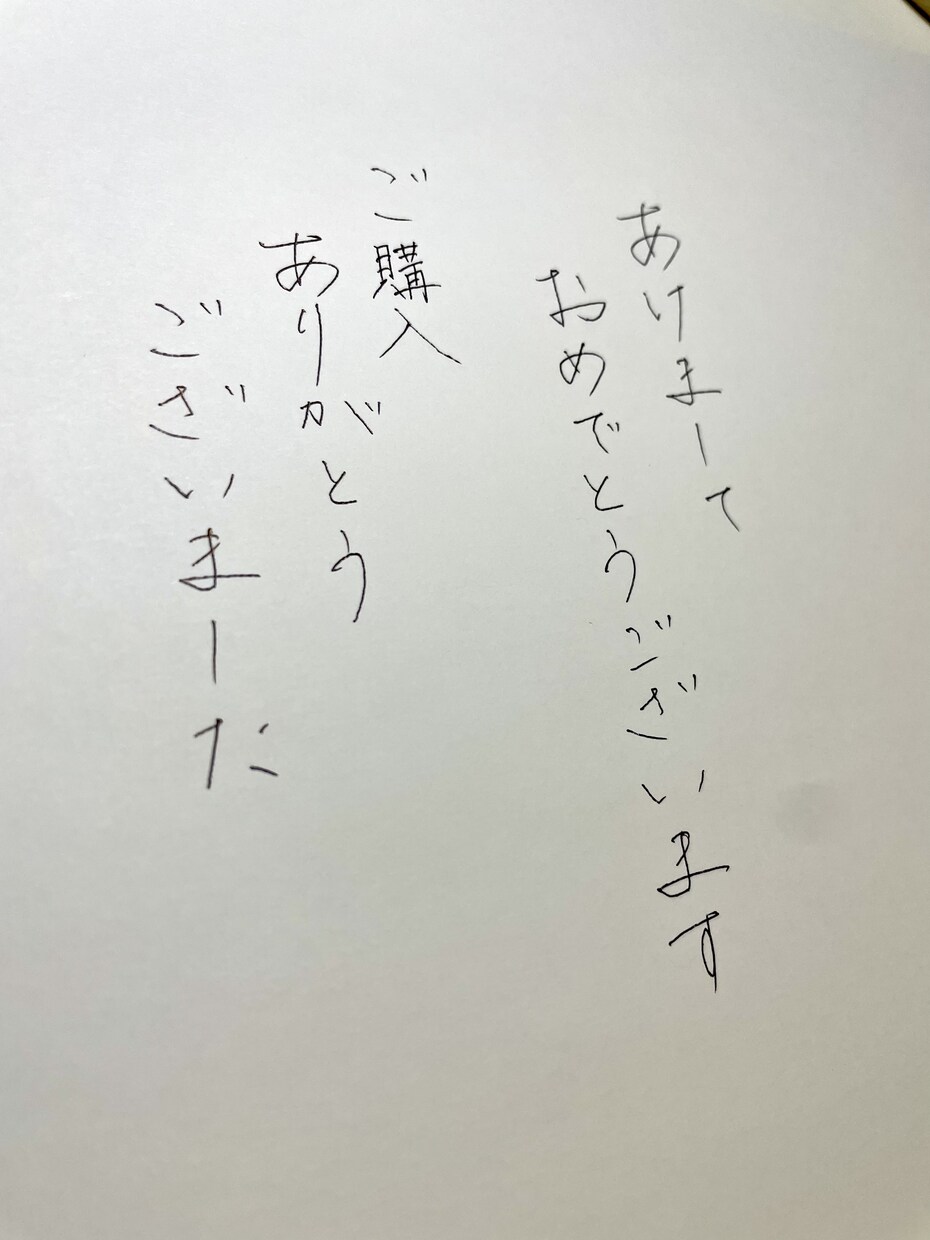 あけまーて
おめでとうございます
ご購入
ありがとう
ございまーた